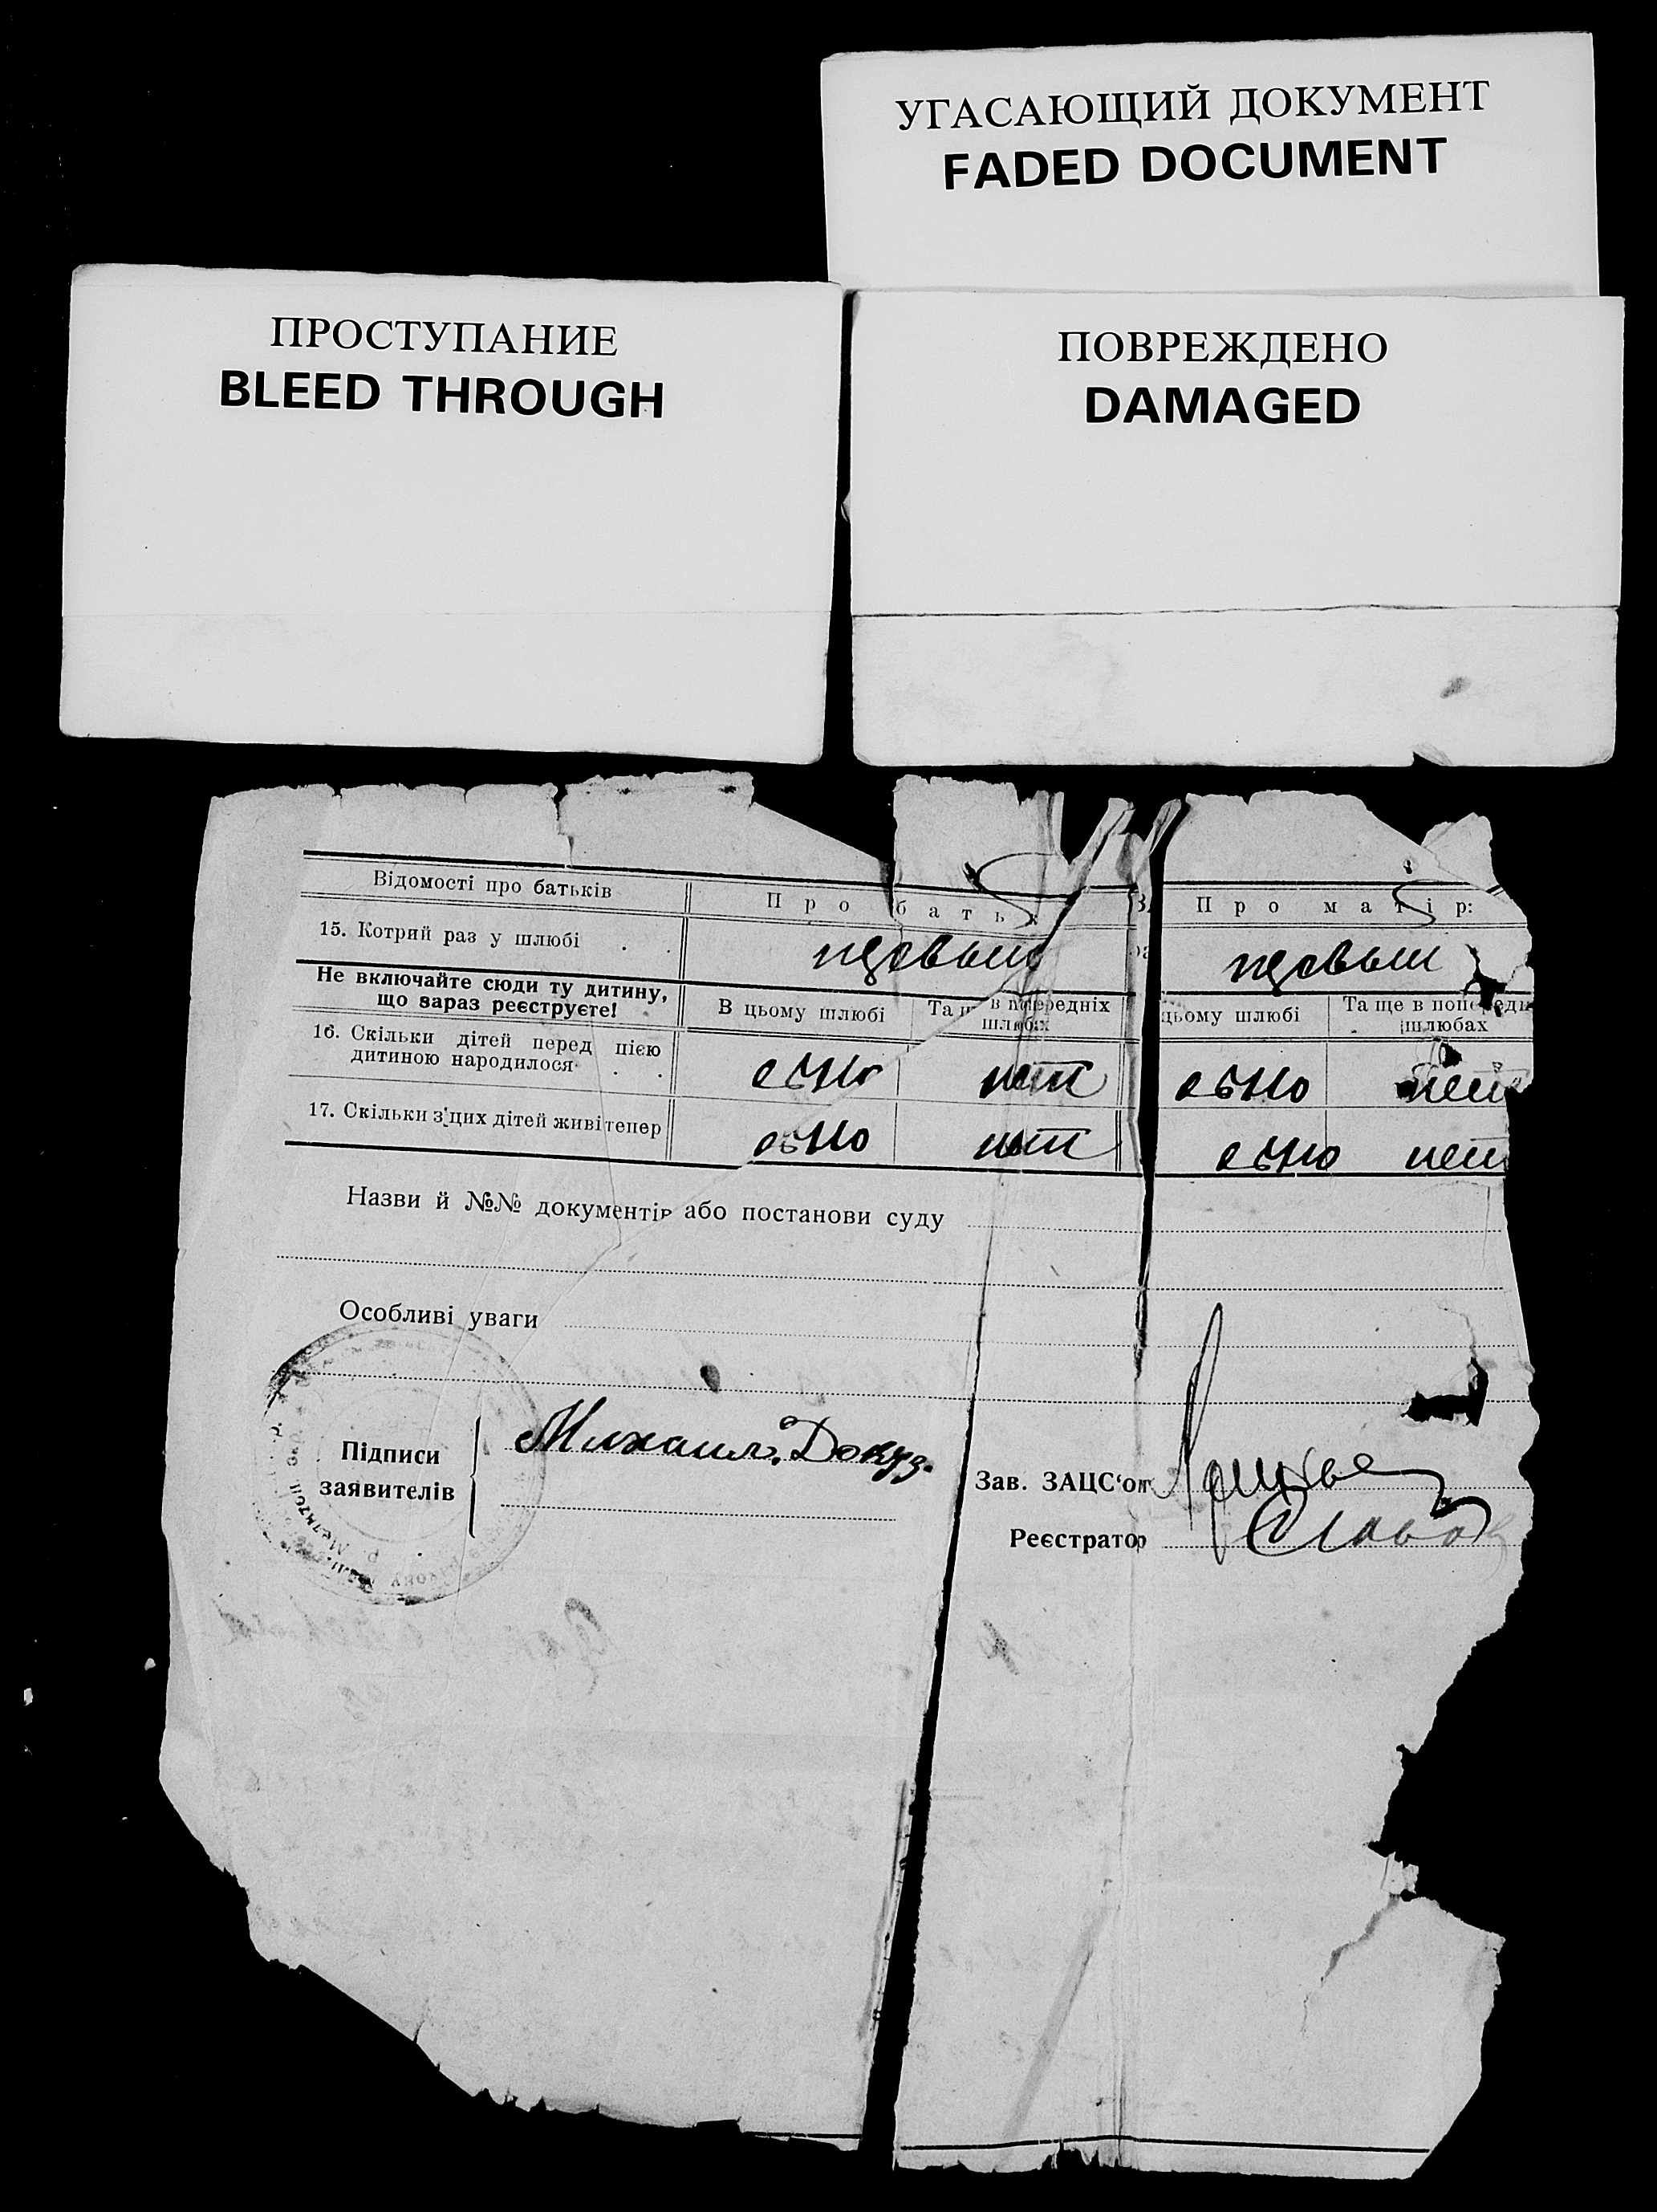 УГАСАЮЩИЙ ДОКУМЕНТ
FADED DOCUMENT
ПРОСТУПАНИЕ
BLEED THROUGH
ПОВРЕЖДЕНО
DAMAGED
Відомості про батьків Про бать Про матір:
15. Котрий раз у шлюбі . . первый первый
Не включайте сюди ту дитину,
що зараз реєструєте!
В цьому шлюбі Та в попередніх шлюбах цьому шлюбі Та ще в попередн шлюбах
16. Скільки дітей перед цією
дитиною народилося . . одно нет одно нет
17. Скільки з цих дітей живі тепер одно нет одно нет
Назви й №№ документів або постанови суду
Особливі уваги
Підписи
заявителів
Михаил Докуз.
Зав. ЗАЦС‘ом
Реєстратор